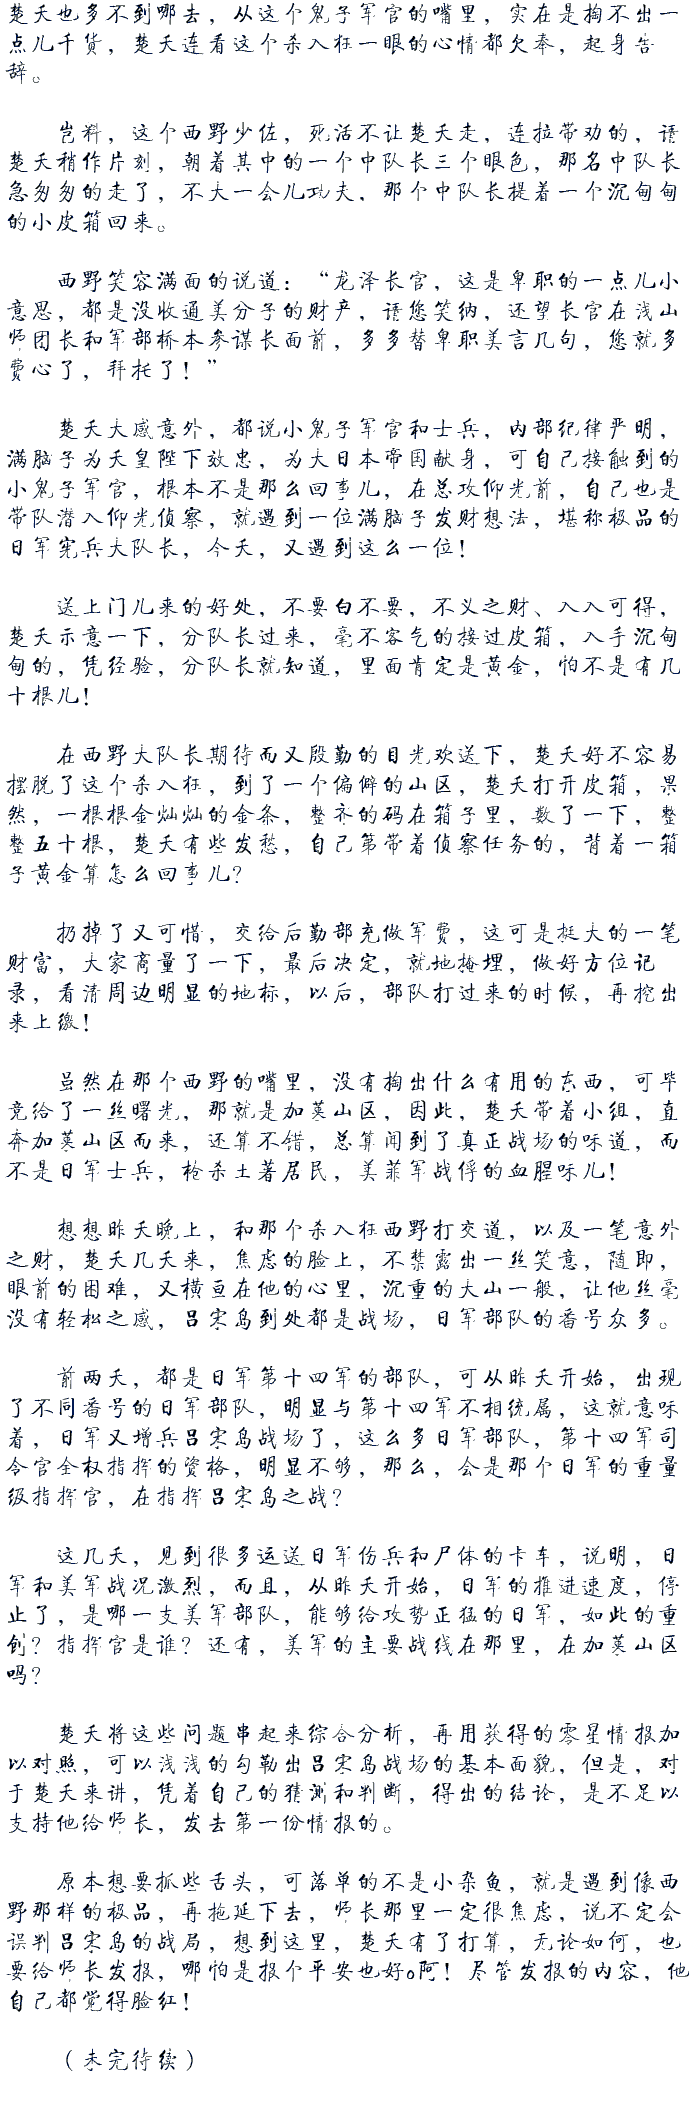 楚天也多不到哪去，从这个鬼子军官的嘴里，实在是掏不出一
点儿干货，楚天连看这个杀人狂一眼的心情都欠奉，起身告
辞。
岂料，这个西野少佐，死活不让楚天走，连拉带劝的，请
楚天稍作片刻，朝着其中的一个中队长三个眼色，那名中队长
急匆匆的走了，不大一会儿功夫，那个中队长提着一个沉甸甸
的小皮箱回来。
西野笑容满面的说道：“龙泽长官，这是卑职的一点儿小
意思，都是没收通美分子的财产，请您笑纳，还望长官在浅山
师团长和军部桥本参谋长面前，多多替卑职美言几句，您就多
费心了，拜托了！”
楚天大感意外，都说小鬼子军官和士兵，内部纪律严明，
满脑子为天皇陛下效忠，为大日本帝国献身，可自己接触到的
小鬼子军官，根本不是那么回事儿，在总攻仰光前，自己也是
带队潜入仰光侦察，就遇到一位满脑子发财想法，堪称极品的
日军宪兵大队长，今天，又遇到这么一位！
送上门儿来的好处，不要白不要，不义之财、人人可得，
楚天示意一下，分队长过来，毫不客气的接过皮箱，入手沉甸
甸的，凭经验，分队长就知道，里面肯定是黄金，怕不是有几
十根儿！
在西野大队长期待而又殷勤的目光欢送下，楚天好不容易
摆脱了这个杀人狂，到了一个偏僻的山区，楚天打开皮箱，果
然，一根根金灿灿的金条，整齐的码在箱子里，数了一下，整
整五十根，楚天有些发愁，自己第带着侦察任务的，背着一箱
子黄金算怎么回事儿？
扔掉了又可惜，交给后勤部充做军费，这可是挺大的一笔
财富，大家商量了一下，最后决定，就地掩埋，做好方位记
录，看清周边明显的地标，以后，部队打过来的时候，再挖出
来上缴！
虽然在那个西野的嘴里，没有掏出什么有用的东西，可毕
竟给了一丝曙光，那就是加莱山区，因此，楚天带着小组，直
奔加莱山区而来，还算不错，总算闻到了真正战场的味道，而
不是日军士兵，枪杀土著居民，美菲军战俘的血腥味儿！
想想昨天晚上，和那个杀人狂西野打交道，以及一笔意外
之财，楚天几天来，焦虑的脸上，不禁露出一丝笑意，随即，
眼前的困难，又横亘在他的心里，沉重的大山一般，让他丝毫
没有轻松之感，吕宋岛到处都是战场，日军部队的番号众多。
前两天，都是日军第十四军的部队，可从昨天开始，出现
了不同番号的日军部队，明显与第十四军不相统属，这就意味
着，日军又增兵吕宋岛战场了，这么多日军部队，第十四军司
令官全权指挥的资格，明显不够，那么，会是那个日军的重量
级指挥官，在指挥吕宋岛之战？
这几天，见到很多运送日军伤兵和尸体的卡车，说明，日
军和美军战况激烈，而且，从昨天开始，日军的推进速度，停
止了，是哪一支美军部队，能够给攻势正猛的日军，如此的重
创？指挥官是谁？还有，美军的主要战线在那里，在加莱山区
吗？
楚天将这些问题串起来综合分析，再用获得的零星情报加
以对照，可以浅浅的勾勒出吕宋岛战场的基本面貌，但是，对
于楚天来讲，凭着自己的猜测和判断，得出的结论，是不足以
支持他给师长，发去第一份情报的。
原本想要抓些舌头，可落单的不是小杂鱼，就是遇到像西
野那样的极品，再拖延下去，师长那里一定很焦虑，说不定会
误判吕宋岛的战局，想到这里，楚天有了打算，无论如何，也
要给师长发报，哪怕是报个平安也好o阿！尽管发报的内容，他
自己都觉得脸红！
（未完待续）